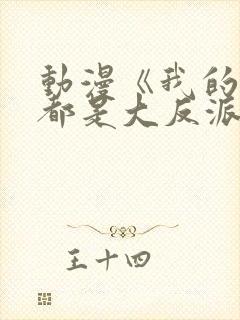 動漫《我的
都是大反派
王十四